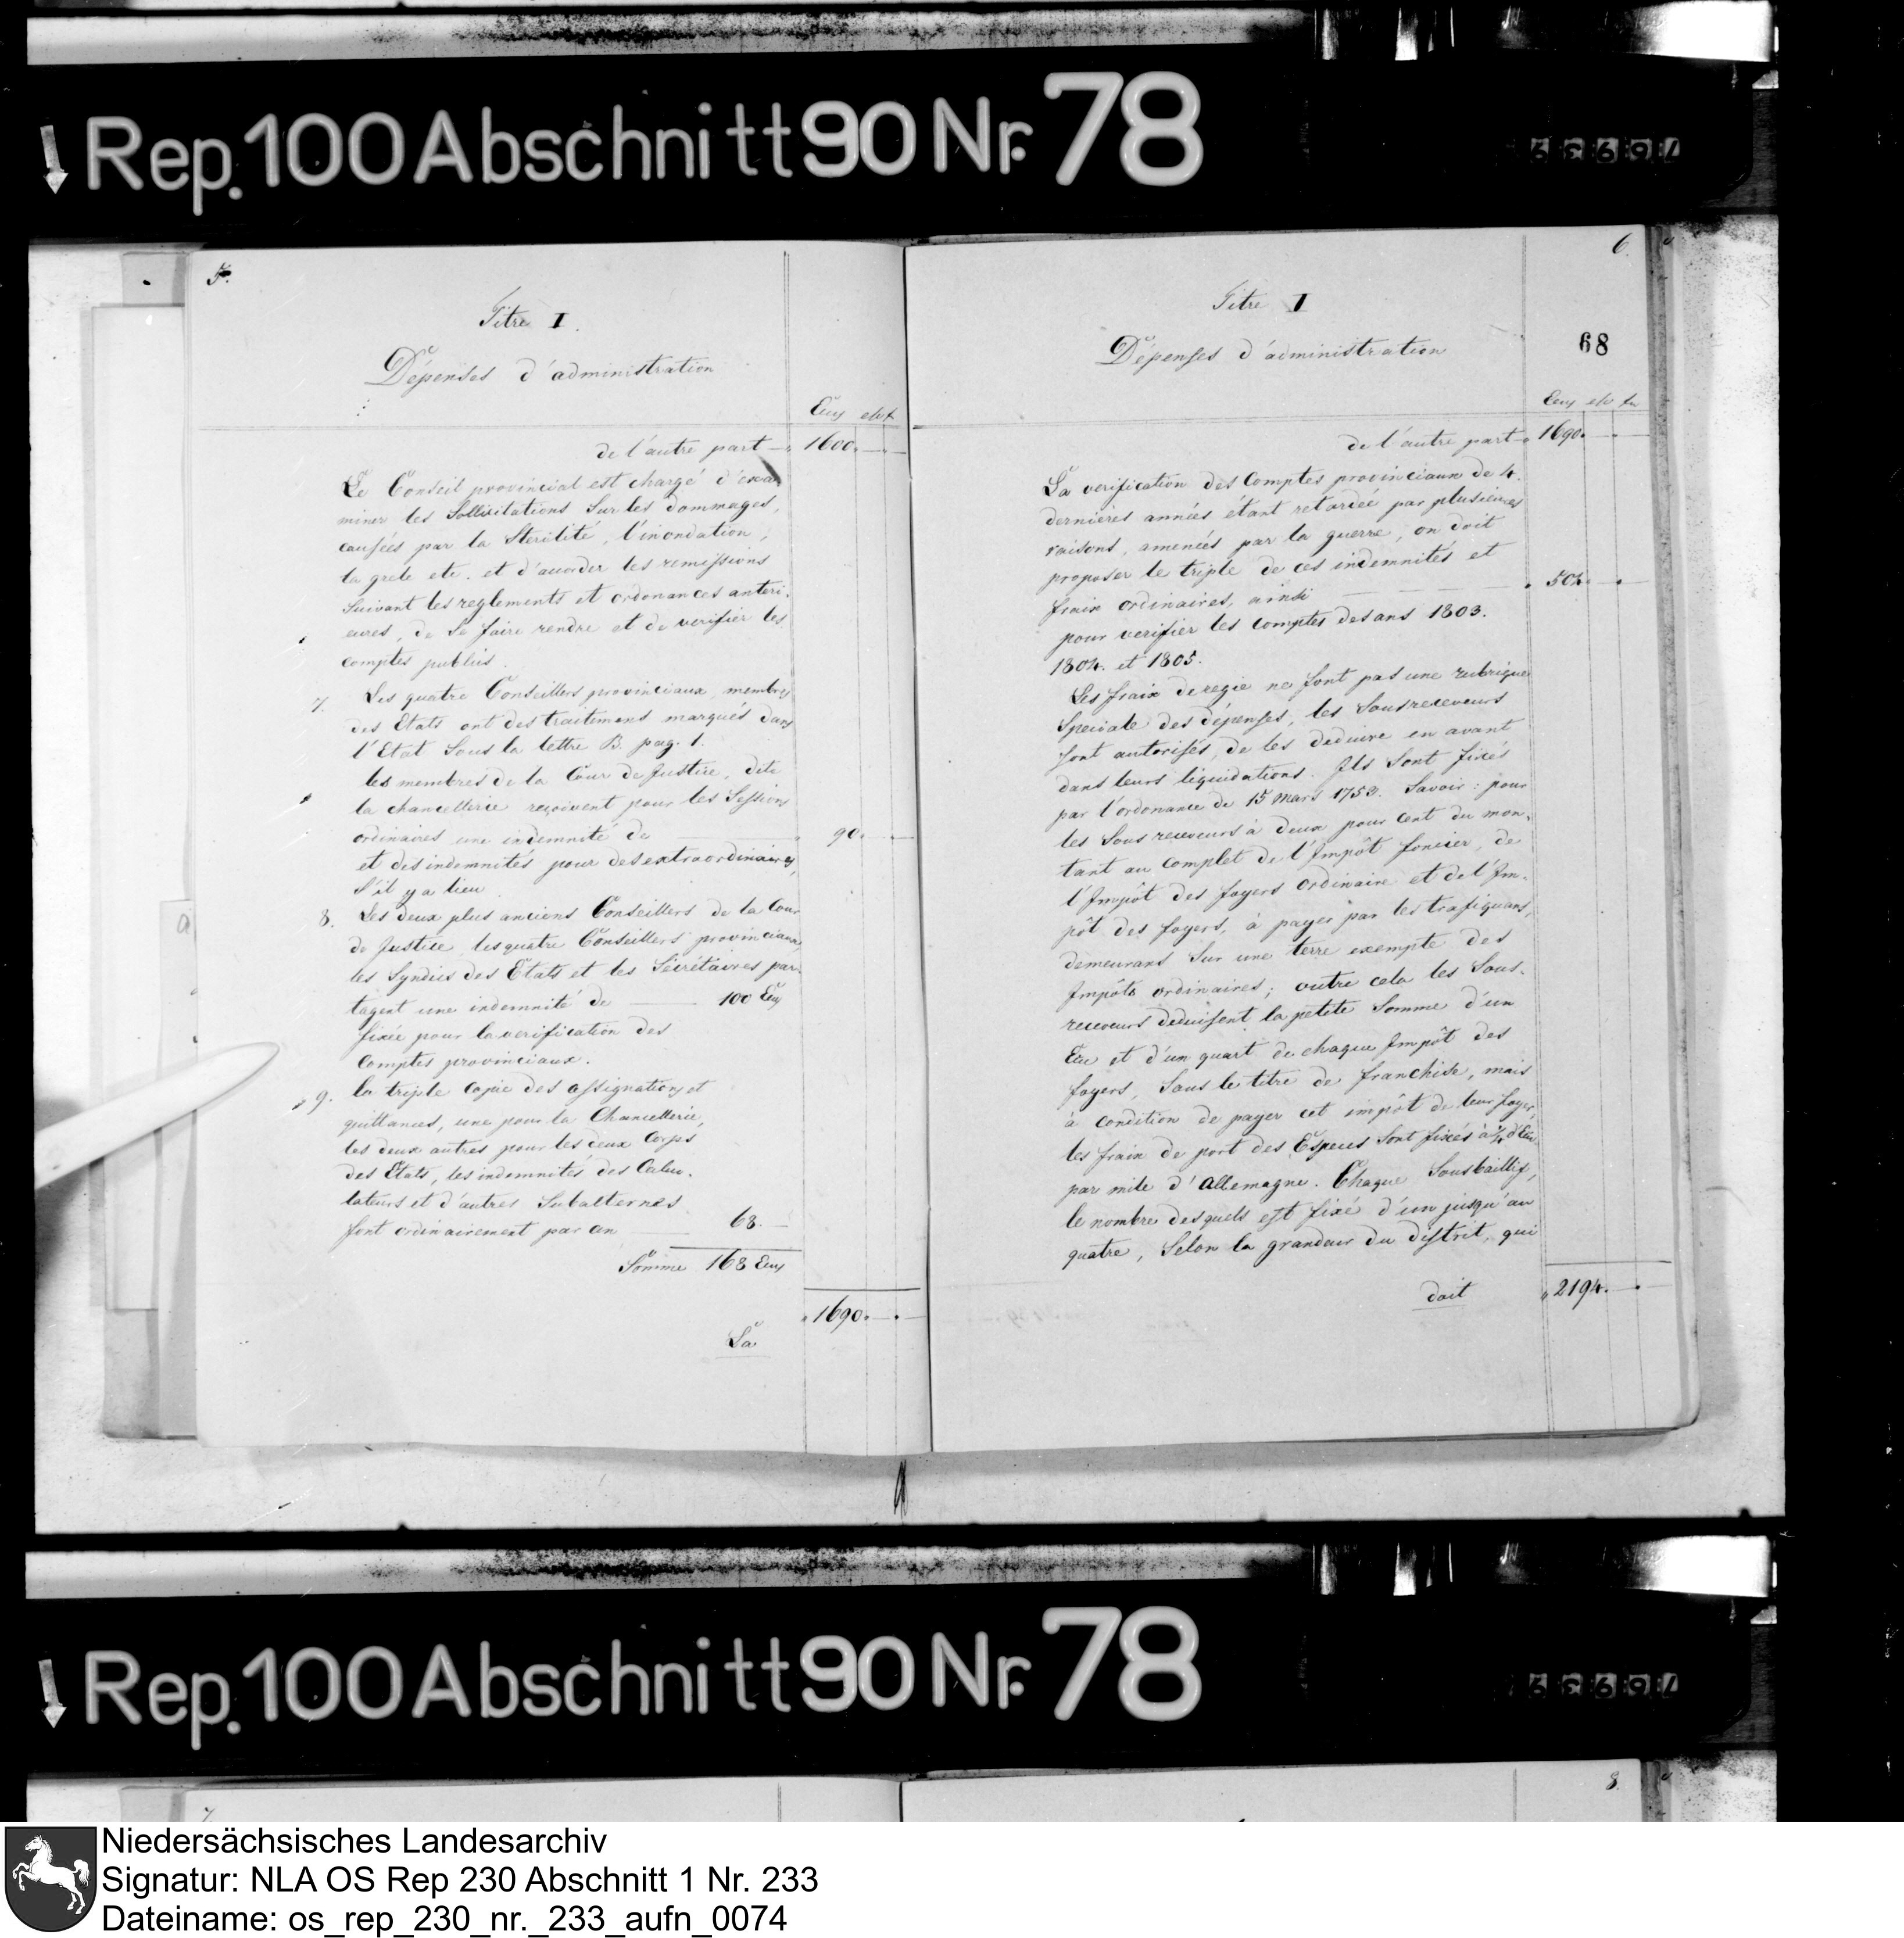 Rep. 100 Abschnitt 90 Nr. 78
5.
Titre I.
Dépenses d'administration
Ecus
de l'autre part 1600.
Le Conseil provincial est chargé d'exa
miner les Sollicitations Sur les dommages,
causées par la Sterilité, l'inondation,
la grele etc. et d'accorder les remissions
Suivant les reglements et ordonances anteri-
eures, de Se faire rendre et de verifier les
comptes publics.
7. Les quatre Conseillers provinciaux, membres
des Etats ont des traitemens marqués dans
l'Etat Sous la lettre B. pag. 1.
les membres de la Cour de Justice, dite
la chancellerie reçoivent pour les Sessions
ordinaires une indemnité de 90.
et des indemnités pour des extraordinaires,
S'il y a lieu
8. Les deux plus anciens Conseillers de la Cour
de Justice, les quatre Conseillers provinciaux,
les Syndics des Etats et les Sécrétaires par-
tagent une indemnité de 100 Ecus
fixée pour la verification des
Comptes provinciaux.
9. la triple Copie des assignations et
quittances, une pour la Chancellerie,
les deux autres pour les deux Corps
des Etats, les indemnités des Calcu-
lateurs et d'autres Subalternes
font ordinairement par an 68.
Somme 168 Ecus
1690.
La
6.
Titre I
68
Dépenses d'administration
Ecus
de l'autre part 1690.
La verification des Comptes provinciaux de 4.
dernieres années étant retardée par plusieures
raisons, amenées par la guerre, on doit
proposer le triple de ces indemnités et
fraix ordinaires, ainsi 504.
pour verifier les comptes des ans 1803.
1804. et 1805.
Les fraix de regie ne font pas une rubrique
Speciale des dépenses, les Sousreceveurs
sont autorisés, de les deduire en avant
dans leurs liquidations. Ils Sont fixés
par l'ordonance de 15 Mars 1753. Savoir: pour
les Sous receveurs à deux pour cent du mon-
tant au complet de l'Impôt foncier, de
l'Impôt des foyers ordinaire et de l'Im-
pôt des foyers, à payer par les trafiquans,
demeurans Sur une terre exempte des
Impôts ordinaires; outre cela les Sous-
receveurs deduisent la petite Somme d'un
Ecu et d'un quart de chaque Impôt des
foyers, Sous le titre de franchise, mais
à condition de payer cet impôt de leur foyer,
les fraix de port des Especes Sont fixés à d'Ecu
par mile d'Allemagne. Chaque Sousbaillif,
le nombre desquels est fixé d'un jusqu'au
quatre, Selon la grandeur du district, qui
doit 2194.
Rep. 100 Abschnitt 90 Nr. 78
7
8.
Niedersächsisches Landesarchiv
Signatur: NLA OS Rep 230 Abschnitt 1 Nr. 233
Dateiname: os_rep_230_nr._233_aufn_0074